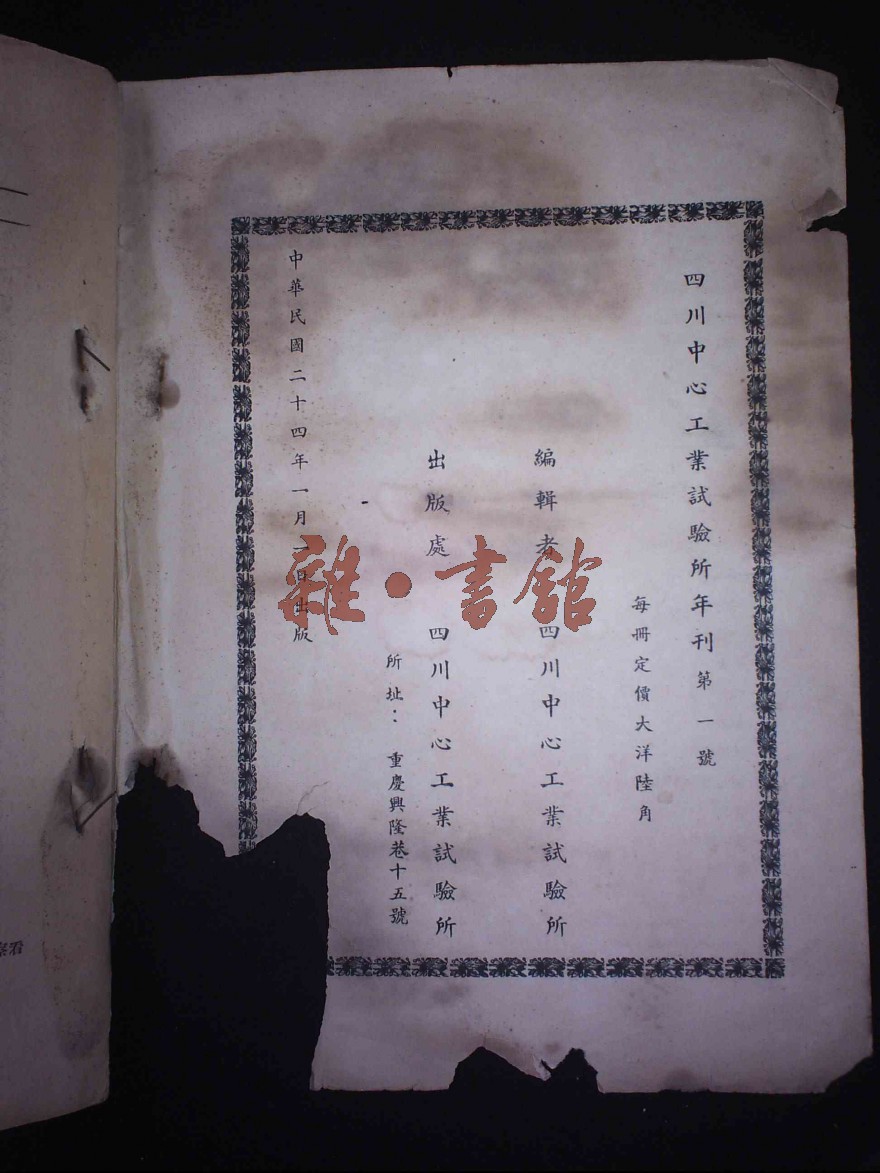 四川中心工業試驗所年刊第一號
每冊定價大洋陸角
編輯者 四川中心工業試驗所
出版處 四川中心工業試驗所
所址：重慶興隆巷十五號
中華民國二十四年一月一日出版
雜·書館